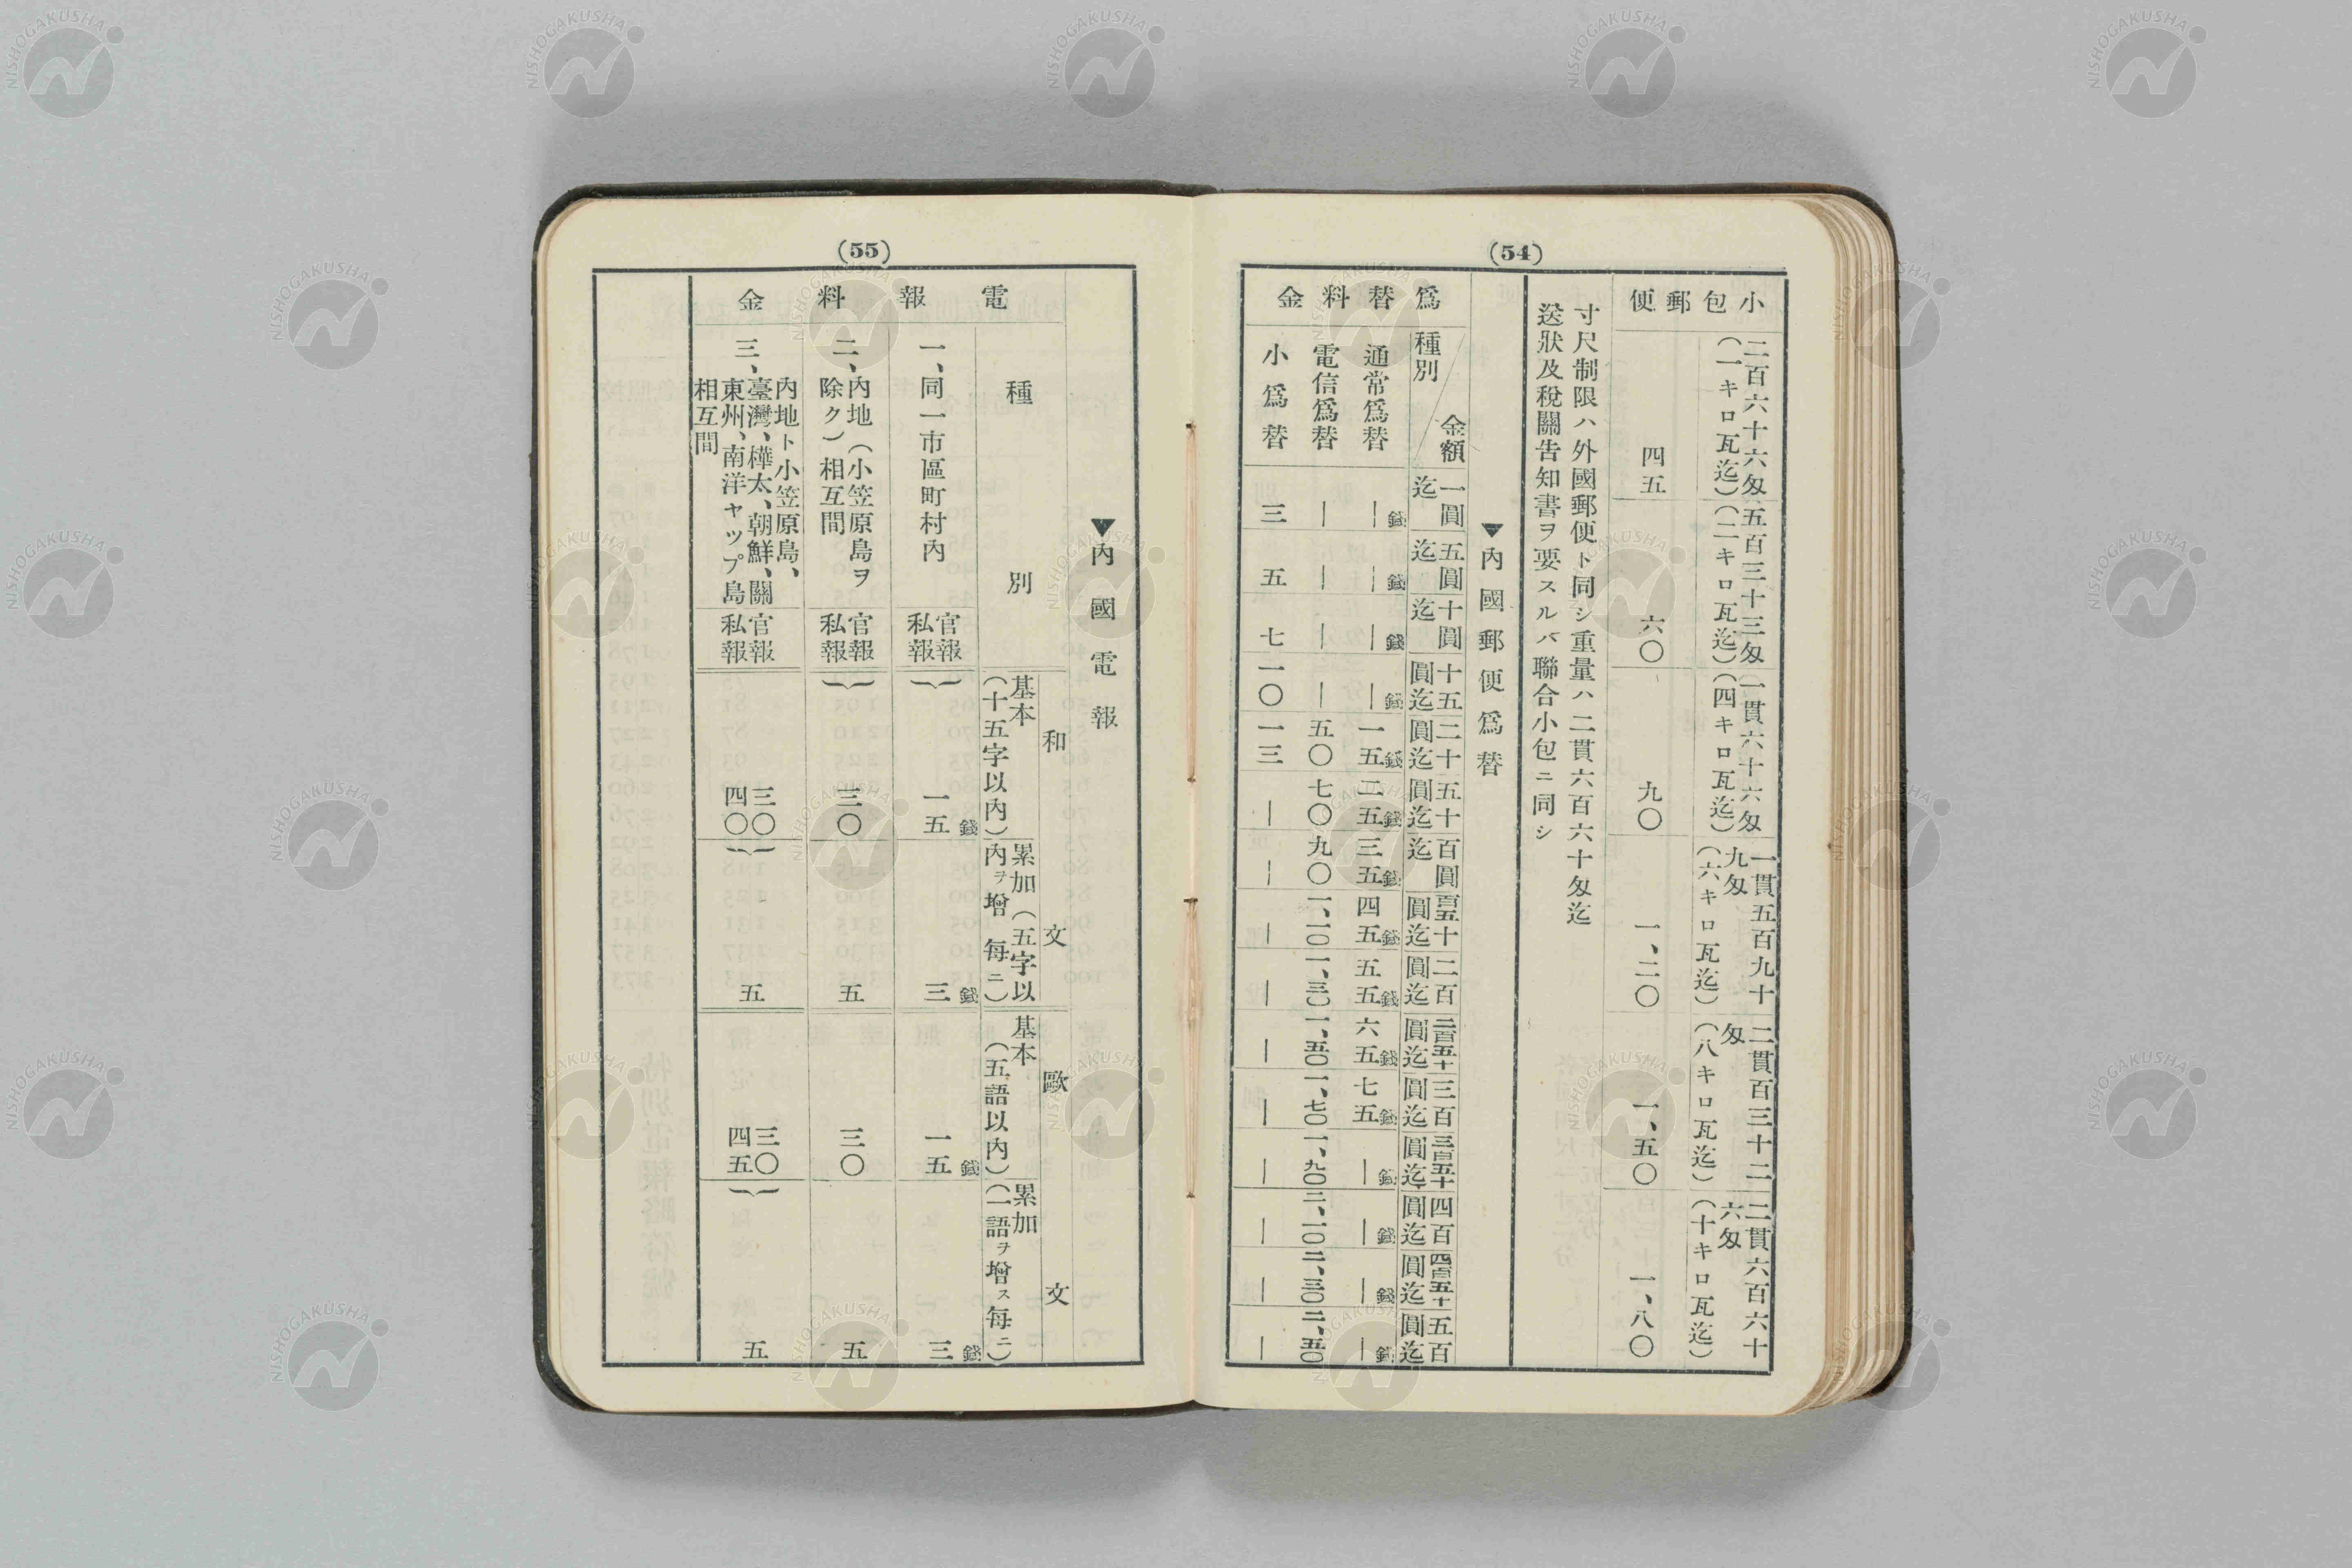 (54)
小包郵便
二百六十六匁
(一キロ瓦迄)
四五
五百三十三匁
(二キロ瓦迄)
六〇
一貫六十六匁
(四キロ瓦迄)
九〇
一貫五百九十
九匁
(六キロ瓦迄)
一、二〇
二貫百三十二
匁
(八キロ瓦迄)
一、五〇
二貫六百六十
六匁
(十キロ瓦迄)
一、八〇
寸尺制限ハ外國郵便ト同シ重量ハ二貫六百六十匁迄
送狀及稅關告知書ヲ要スルバ聯合小包ニ同シ
▼內國郵便爲替
爲替料金
金額
種別
一圓迄
五圓迄
十圓迄
十五圓迄
二十圓迄
五十圓迄
百圓迄
百五十圓迄
二百圓迄
二百五十圓迄
三百圓迄
三百五十圓迄
四百圓迄
四百五十圓迄
五百圓迄
通常爲替
—錢
—錢
—錢
—錢
一五錢
二五錢
三五錢
四五錢
五五錢
六五錢
七五錢
—錢
—錢
—錢
—錢
電信爲替
—
—
—
—
五〇
七〇
九〇
一、一〇
一、三〇
一、五〇
一、七〇
一、九〇
二、一〇
二、三〇
二、五〇
小爲替
三
五
七
一〇
一三
—
—
—
—
—
—
—
—
—
—
(55)
▼內國電報
電報料金
種別
和文
歐文
基本
(十五字以內)
累加(五字以
內ヲ增 每ニ)
基本
(五語以內)
累加
(一語ヲ增ス每ニ)
一、同一市區町村內
官報
私報
一五錢
三錢
一五錢
三錢
二、內地(小笠原島ヲ
除ク)相互間
官報
私報
三〇
五
三〇
五
三、
內地ト小笠原島、
臺灣、樺太、朝鮮、關
東州、南洋ヤップ島
相互間
官報
私報
三〇
四〇
五
三〇
四五
五
NISHOGAKUSHA